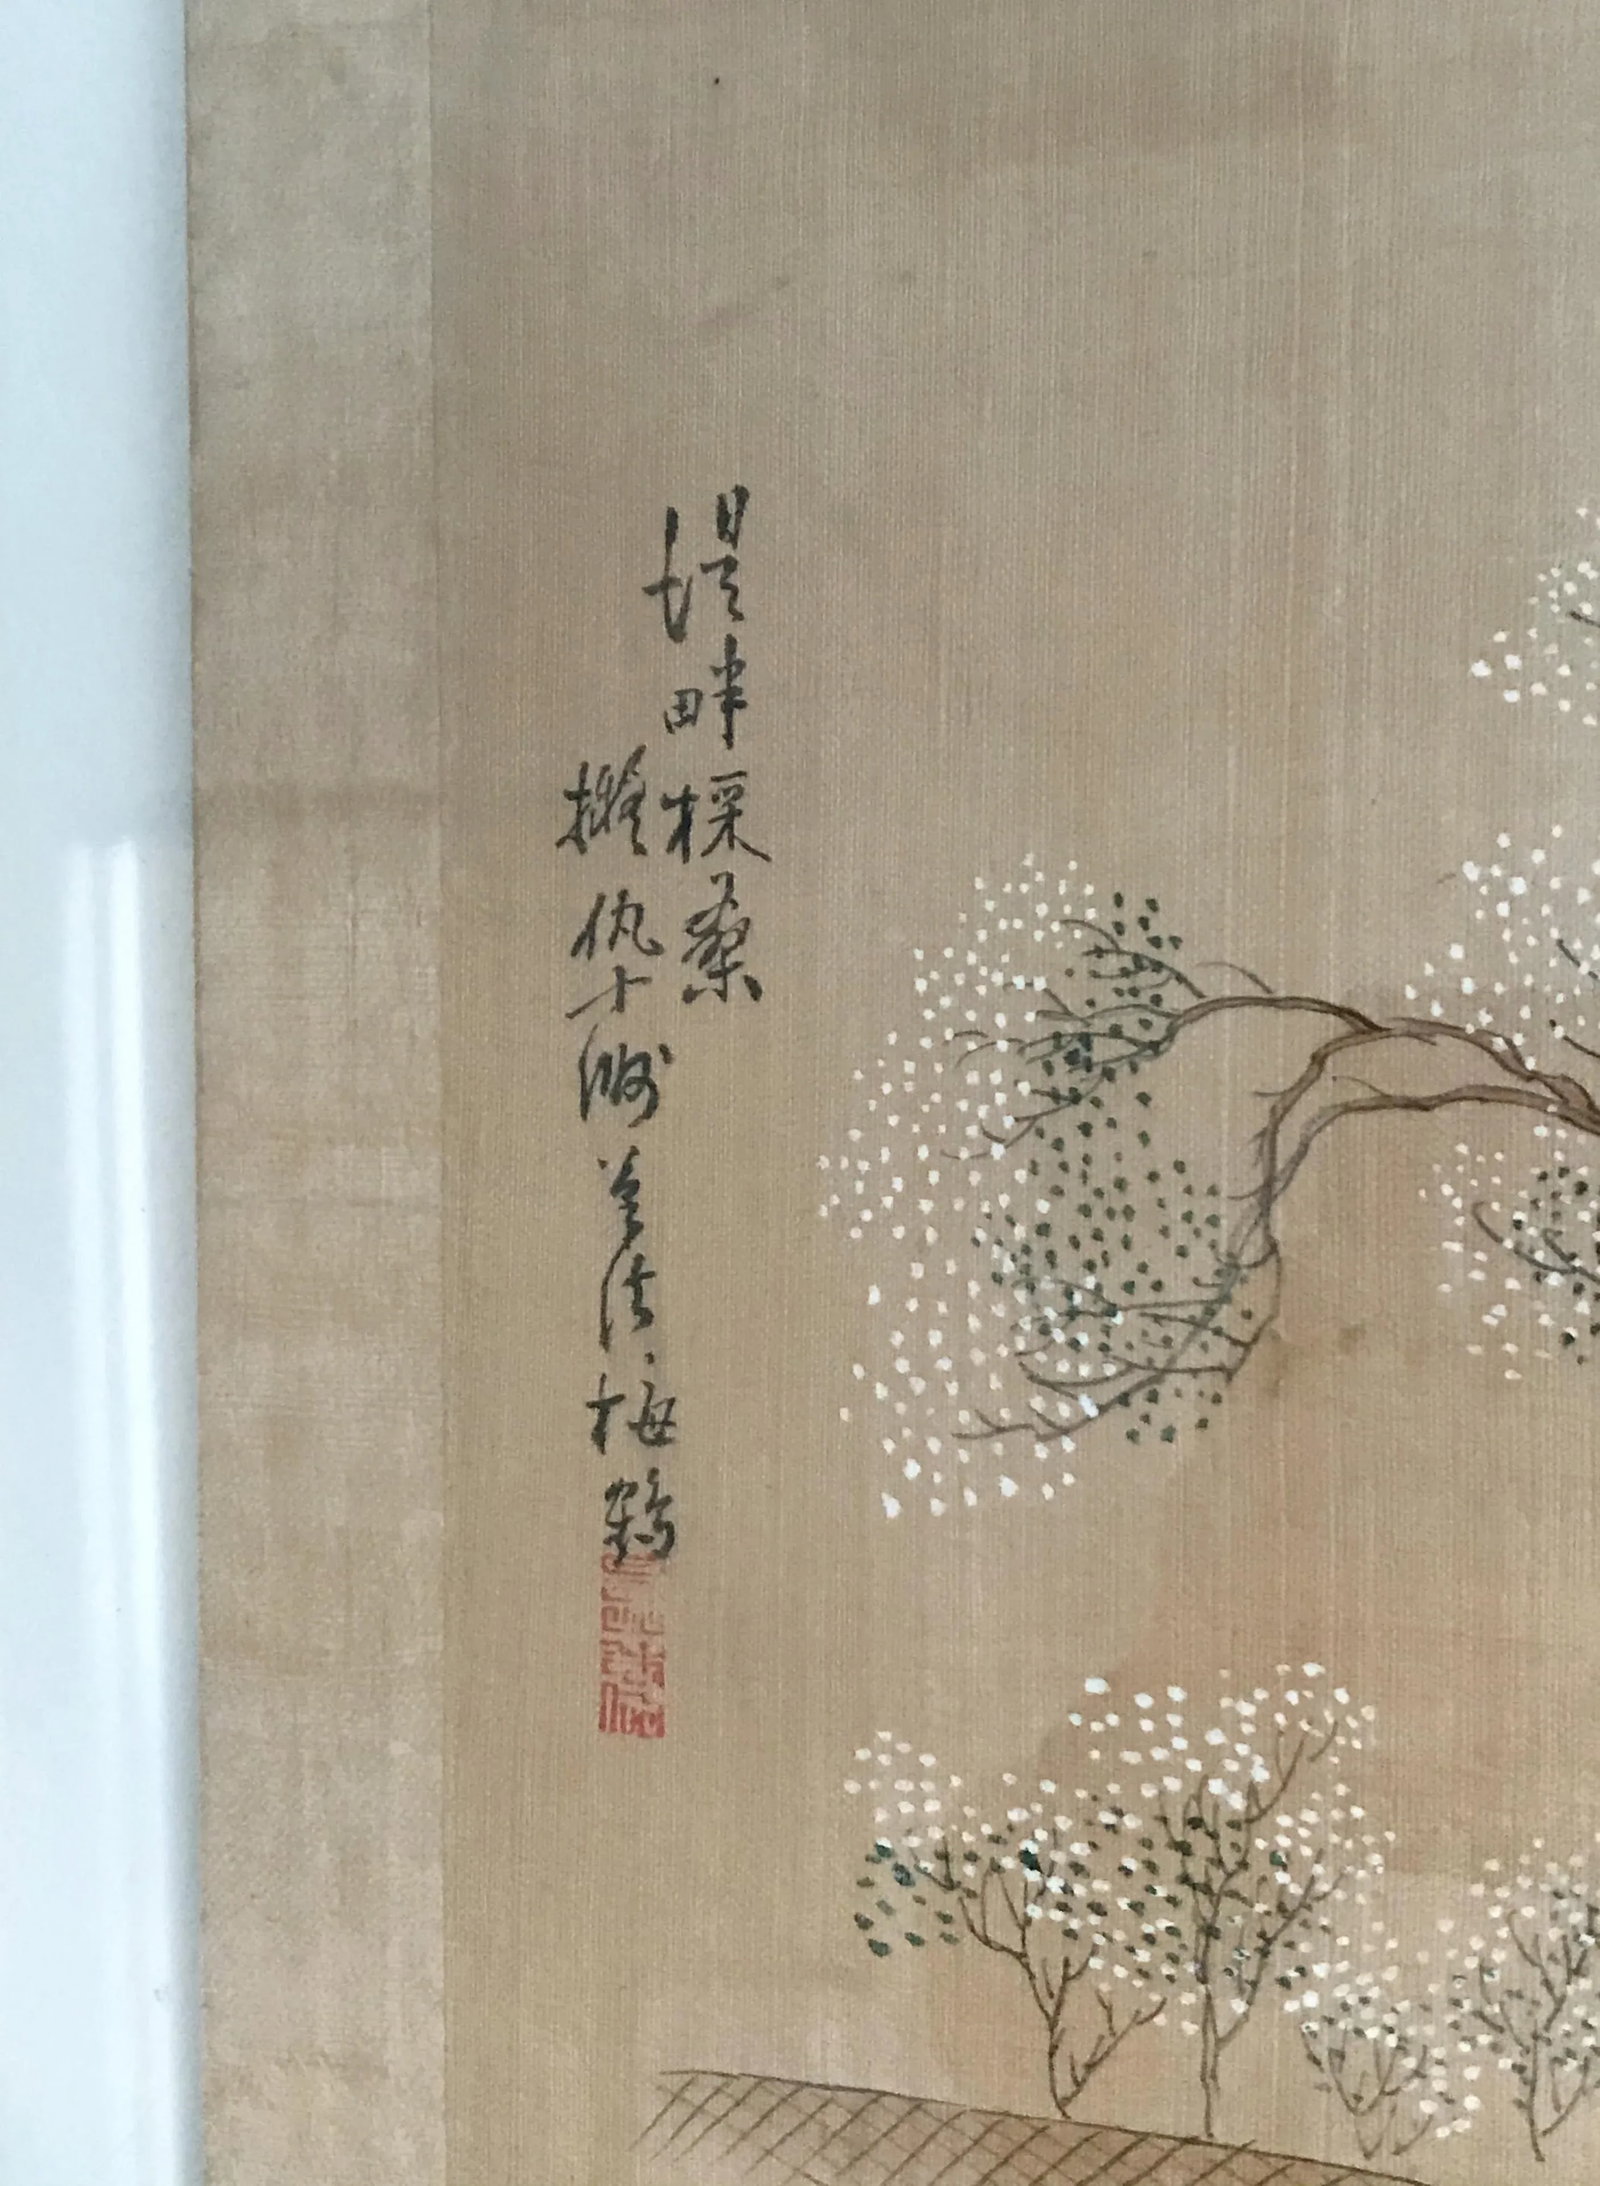 堤畔採桑
擬仇十洲筆法 梅鶴